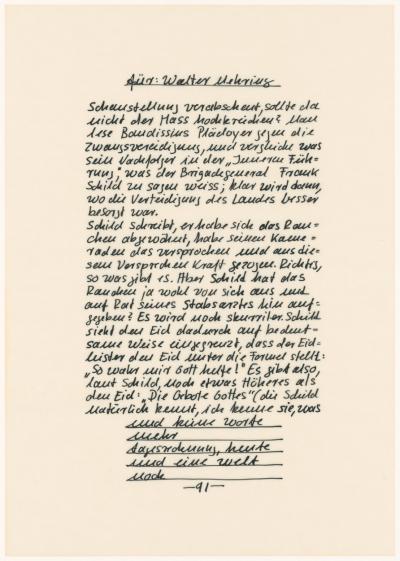 für: Walter Mehring
Schaustellung verabscheut, sollte da
nicht der Hass hochkriechen? Man
lese Baudissins Plädoyer gegen die
Zwangsvereidigung, und vergleiche was
sein Nachfolger in der „Inneren Füh=
rung", was der Brigadegeneral Frank
Schild zu sagen weiss; klar wird dann,
wo die Verteidigung des Landes besser
besorgt war.
Schild schreibt, er habe sich das Rau=
chen abgewöhnt, habe seinen Kame=
raden das versprochen und aus die=
sem Versprechen Kraft gezogen. Richtig,
so was gibt es. Aber Schild hat das
Rauchen ja wohl von sich aus und
auf Rat seines Stabsarztes hin auf=
gegeben? Es wird noch skurriler. Schild
sieht den Eid dadurch auf bedeut=
same Weise eingegrenzt, dass der Eid=
leister den Eid unter die Formel stellt:
„So wahr mir Gott helfe!" Es gibt also,
laut Schild, noch etwas Höheres als
den Eid: „Die Gebote Gottes" (die Schild
natürlich kennt, ich kenne sie, was
und keine Worte
mehr
Tagesordnung, heute
und eine Welt
noch
—91—